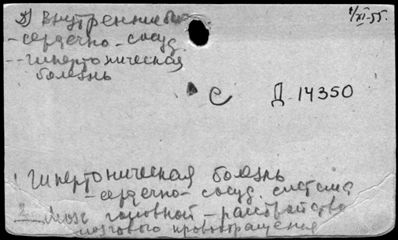 1/XI-55.
Внутренние б
- сердечно - сосуд.
-- гипертоническая
болезнь
С Д-14350
1 Гипертоническая болезнь
- сердечно - сосуд. система
2. Мозг головной - расстройство
мозгового кровообращения